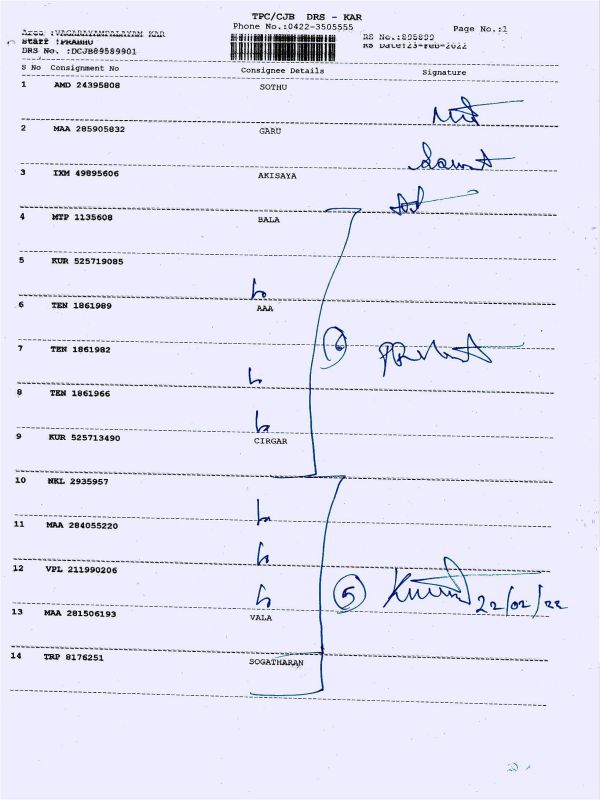 TPC/CJB DRS - KAR
Phone No.:0422-3505555 Page No.:1
Area :VAGARAYAMPALAYAM KAR
Staff :PRABHU RS No.:895899
DRS No. :DCJB89589901 RS Date:23-Feb-2022
S No Consignment No Consignee Details Signature
1 AMD 24395808 SOTHU
2 MAA 285905832 GARU
3 IXM 49895606 AKISAYA
4 MTP 1135608 BALA
5 KUR 525719085
6 TEN 1861989 AAA
7 TEN 1861982
8 TEN 1861966
9 KUR 525713490 CIRGAR
10 NKL 2935957
11 MAA 284055220
12 VPL 211990206
5 22/02/22
13 MAA 281506193 VALA
14 TRP 8176251 SOGATHARAN